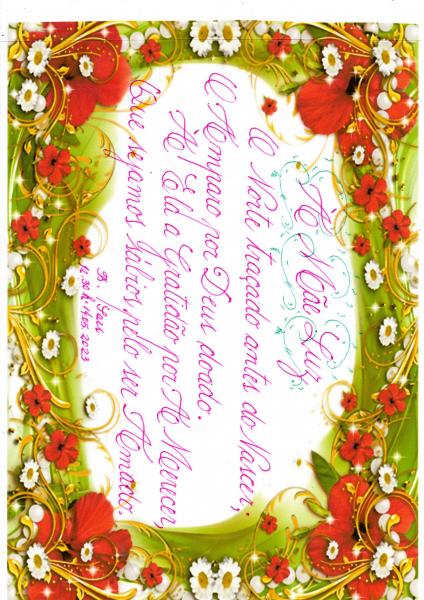 À Mãe Luz
O Norte traçado antes do Nascer;
O Amparo por Deus doado.
À Ela a Gratidão por A Merecer,
E que sejamos Sábios pelo ser Amado.
B. Saes
12:30 h. 14.05.2023